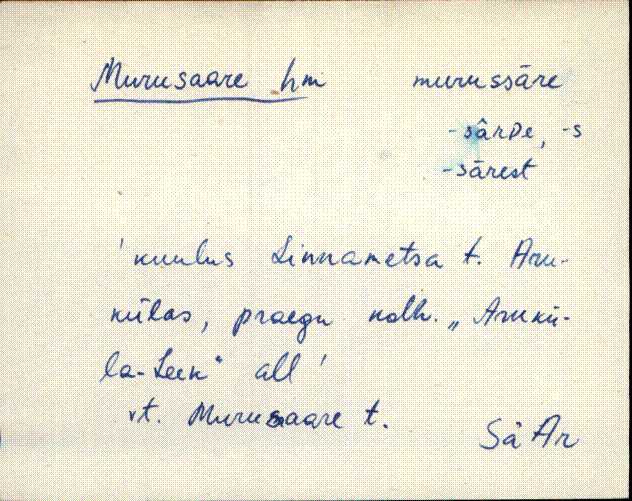 Murusaare hm murussāre
-sârDe, -s
-sārest
'kuulus Linnametsa t. Aru-
külas, praegu kolh. „Arukü-
la-Leek" all'
vt. Murusaare t.
Sâ Ar